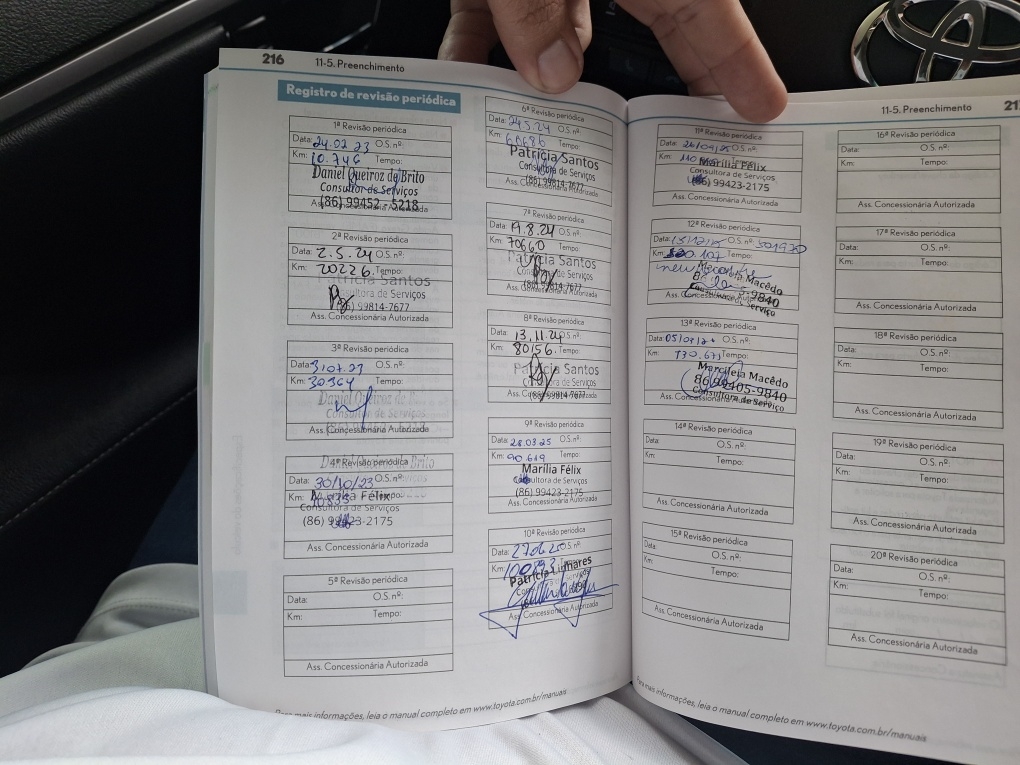 216 11-5. Preenchimento
Registro de revisão periódica
1ª Revisão periódica
Data: 24.02.23 O.S. nº:
Km: 10.746 Tempo:
Daniel Queiroz de Brito
Consultor de Serviços
(86) 99452-5218
Ass. Concessionária Autorizada
2ª Revisão periódica
Data: 2.5.24 O.S. nº:
Km: 20226. Tempo:
Patricia Santos
Consultora de Serviços
(86) 99814-7677
Ass. Concessionária Autorizada
3ª Revisão periódica
Data: 31.07.23 O.S. nº:
Km: 30364 Tempo:
Daniel Queiroz de
Consultor de Serviços
Ass. Concessionária Autorizada
Daniel Queiroz de Brito
4ª Revisão periódica
Data: 30/10/23 O.S. nº:
Km: Tempo:
Marília Félix
Consultora de Serviços
(86) 99423-2175
Ass. Concessionária Autorizada
5ª Revisão periódica
Data: O.S. nº:
Km: Tempo:
Ass. Concessionária Autorizada
6ª Revisão periódica
Data: 24.5.24 O.S. nº:
Km: 60686 Tempo:
Patricia Santos
Consultora de Serviços
(86) 99814-7677
7ª Revisão periódica
Data: 19.8.24 O.S. nº:
Km: 70660 Tempo:
Patricia Santos
Consultora de Serviços
(86) 99814-7677
Ass. Concessionária Autorizada
8ª Revisão periódica
Data: 13.11.24 O.S. nº:
Km: 80156. Tempo:
Patricia Santos
Consultora de Serviços
(86) 99814-7677
Ass. Concessionária Autorizada
9ª Revisão periódica
Data: 28.03.25 O.S. nº:
Km: 90.619 Tempo:
Marília Félix
Consultora de Serviços
(86) 99423-2175
Ass. Concessionária Autorizada
10ª Revisão periódica
Data: O.S. nº:
Km: 100893 Tempo:
Patricia Linhares
Ass. Concessionária Autorizada
Para mais informações, leia o manual completo em www.toyota.com.br/manuais
11-5. Preenchimento 21
11ª Revisão periódica
Data: O.S. nº:
Km: Tempo:
Marília Félix
Consultora de Serviços
(86) 99423-2175
Ass. Concessionária Autorizada
12ª Revisão periódica
Data: O.S. nº: 501970
Km: Tempo:
Macêdo
5-9840
Consultora de Serviço
13ª Revisão periódica
Data: O.S. nº:
Km: 130.673 Tempo:
Marcileia Macêdo
86 99405-9840
Consultora de Serviço
Ass. Concessionária Autorizada
14ª Revisão periódica
Data: O.S. nº:
Km: Tempo:
Ass. Concessionária Autorizada
15ª Revisão periódica
Data: O.S. nº:
Km: Tempo:
Ass. Concessionária Autorizada
16ª Revisão periódica
Data: O.S. nº:
Km: Tempo:
Ass. Concessionária Autorizada
17ª Revisão periódica
Data: O.S. nº:
Km: Tempo:
Ass. Concessionária Autorizada
18ª Revisão periódica
Data: O.S. nº:
Km: Tempo:
Ass. Concessionária Autorizada
19ª Revisão periódica
Data: O.S. nº:
Km: Tempo:
Ass. Concessionária Autorizada
20ª Revisão periódica
Data: O.S. nº:
Km: Tempo:
Ass. Concessionária Autorizada
Para mais informações, leia o manual completo em www.toyota.com.br/manuais